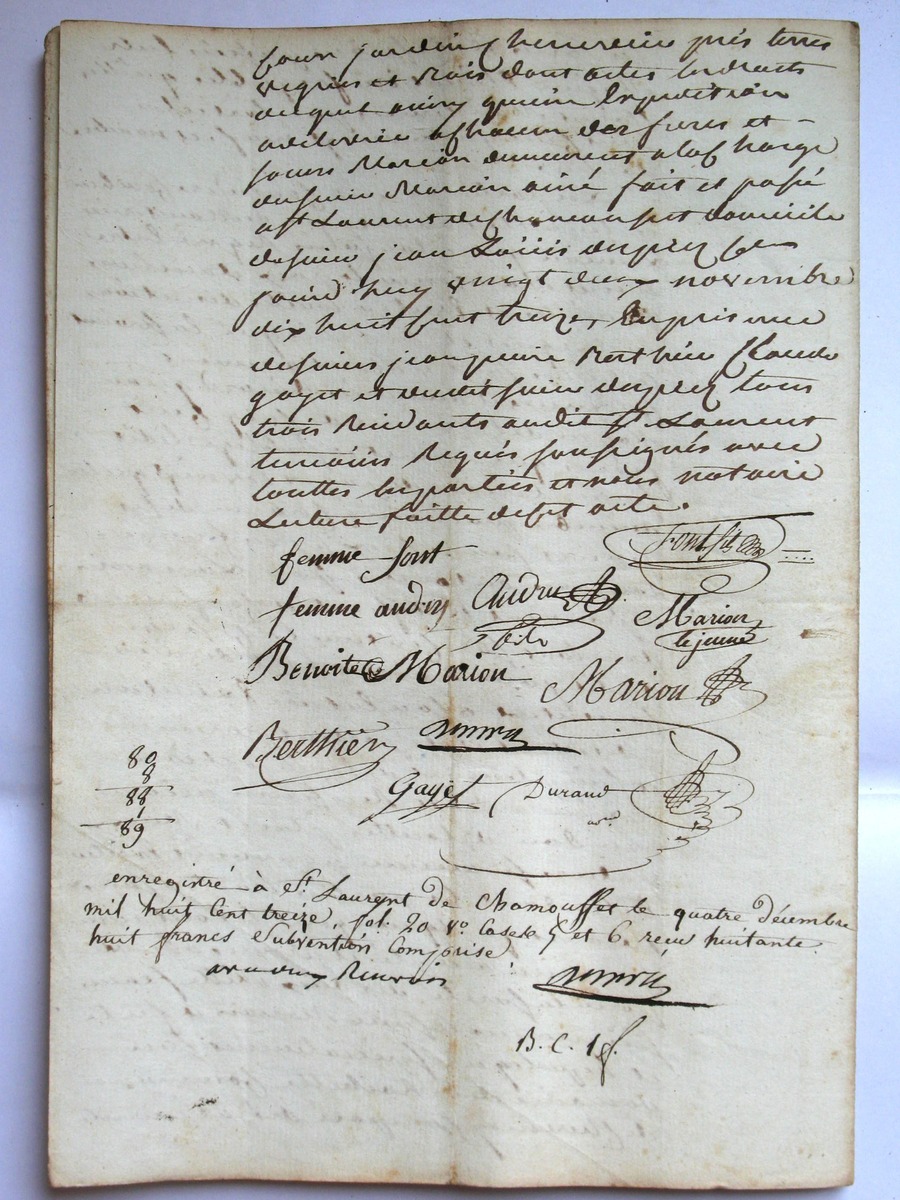 Cour jardin Chenevier près terres
vignes et bois dont actes
ainsy qu'une Expedition
a chacun des freres et
sœurs Marion demeurent a la Charge
du sieur Marion ainé fait et passé
a St Laurent de Chamousset domicile
de sieur jean Louis dupuy
jourd'huy vingt deux novembre
dix huit cent treize, En presence
de sieurs Berthier Claude
gayet et dudit sieur dupuy tous
trois Residants audit St Laurent
temoins Requis soussignés avec
touttes les parties et nous notaire
Lecture faitte de cet acte.
femme font
Font fils
femme andry Andru
fils
Marion
le jeune
Benoite Marion
Marion
Berthier
Gayet Durand
80
8
88
1
89
enregistré à St. Laurent de Chamousset le quatre décembre
mil huit Cent treize, fol. 20 vo Cases 5 et 6. reçu huitante
huit francs Subvention Comprise
avec deux Renvois
B. C. 1 f.